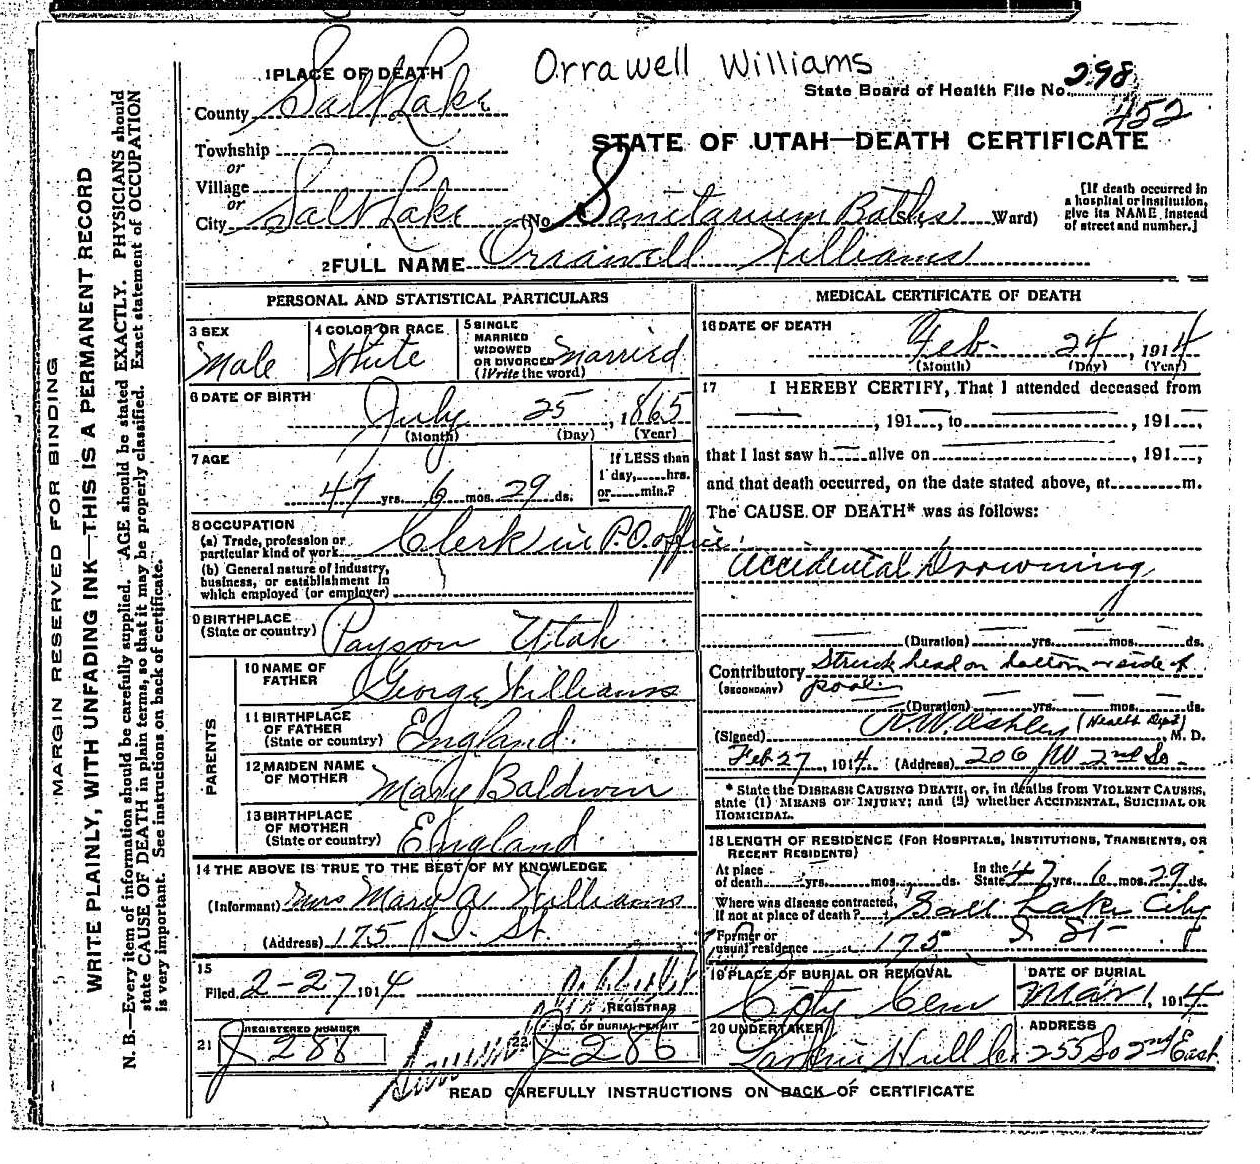 Orrawell Williams
1 PLACE OF DEATH
State Board of Health File No. 298
452
County Salt Lake
STATE OF UTAH—DEATH CERTIFICATE
Township
or
Village
or
City Salt Lake (No. Sanitarium Baths St., Ward)
[If death occurred in
a hospital or institution,
give its NAME instead
of street and number.]
2 FULL NAME Orrawell Williams
PERSONAL AND STATISTICAL PARTICULARS
3 SEX
Male
4 COLOR OR RACE
White
5 SINGLE
MARRIED
WIDOWED
OR DIVORCED
(Write the word)
Married
6 DATE OF BIRTH
July 25, 1865
(Month) (Day) (Year)
7 AGE
47 yrs. 6 mos. 29 ds.
If LESS than
1 day, hrs.
or min.?
8 OCCUPATION
(a) Trade, profession or
particular kind of work Clerk in P.O. office
(b) General nature of industry,
business, or establishment in
which employed (or employer)
9 BIRTHPLACE
(State or country) Payson Utah
PARENTS
10 NAME OF
FATHER George Williams
11 BIRTHPLACE
OF FATHER
(State or country) England
12 MAIDEN NAME
OF MOTHER Mary Baldwin
13 BIRTHPLACE
OF MOTHER
(State or country) England
14 THE ABOVE IS TRUE TO THE BEST OF MY KNOWLEDGE
(Informant) Mrs Mary A Williams
(Address) 175 I. St.
15
Filed 2-27 1914
REGISTRAR
21 REGISTERED NUMBER
J 288
22 NO. OF BURIAL PERMIT
J 286
MEDICAL CERTIFICATE OF DEATH
16 DATE OF DEATH
Feb. 24, 1914
(Month) (Day) (Year)
17 I HEREBY CERTIFY, That I attended deceased from
, 191 , to , 191 ,
that I last saw h alive on , 191 ,
and that death occurred, on the date stated above, at m.
The CAUSE OF DEATH* was as follows:
Accidental Drowning
(Duration) yrs. mos. ds.
Contributory Struck head on bottom or side of
(SECONDARY) pool
(Duration) yrs. mos. ds.
(Signed) R.W. Ashley (Health Dept) M. D.
Feb 27, 1914 (Address) 206 W. 2nd So
* State the DISEASE CAUSING DEATH, or, in deaths from VIOLENT CAUSES,
state (1) MEANS OF INJURY; and (2) whether ACCIDENTAL, SUICIDAL OR
HOMICIDAL.
18 LENGTH OF RESIDENCE (FOR HOSPITALS, INSTITUTIONS, TRANSIENTS, OR
RECENT RESIDENTS)
At place
of death yrs. mos. ds. In the
State 47 yrs. 6 mos. 29 ds.
Where was disease contracted,
if not at place of death? Salt Lake City
Former or
usual residence 175 I St
19 PLACE OF BURIAL OR REMOVAL
City Cem
DATE OF BURIAL
Mar 1, 1914
20 UNDERTAKER
Larkin Hull Co.
ADDRESS
255 So 2nd East
READ CAREFULLY INSTRUCTIONS ON BACK OF CERTIFICATE
MARGIN RESERVED FOR BINDING
WRITE PLAINLY, WITH UNFADING INK—THIS IS A PERMANENT RECORD
N. B.—Every item of information should be carefully supplied. AGE should be stated EXACTLY. PHYSICIANS should
state CAUSE OF DEATH in plain terms, so that it may be properly classified. Exact statement of OCCUPATION
is very important. See instructions on back of certificate.